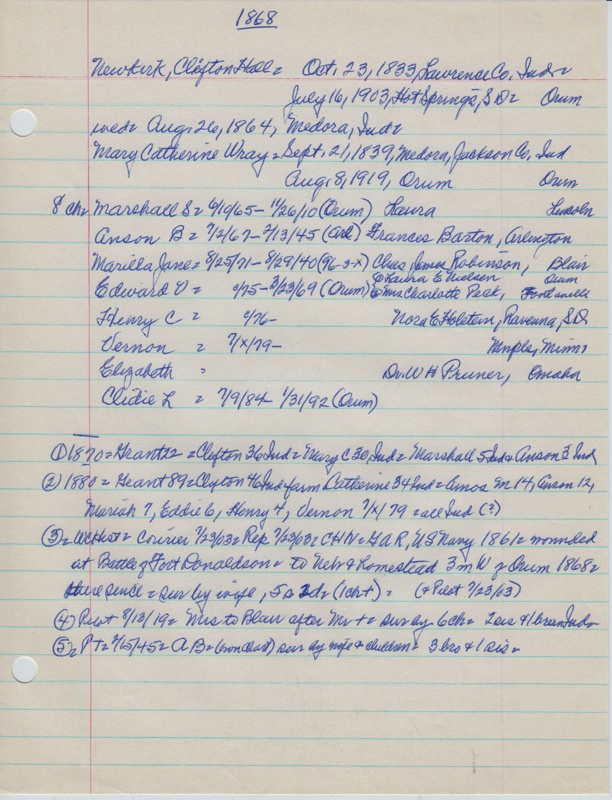 1868
Newkirk, Clifton Hall = Oct. 23, 1833, Lawrence Co. Ind =
July 16, 1903, Hot Springs, SD = Orum
wed = Aug. 26, 1864, Medora, Ind =
Mary Catherine Wray = Sept. 21, 1839, Medora, Jackson Co. Ind
Aug. 8, 1919, Orum Orum
8 ch = Marshall S = 6/10/65 - 11/26/10 (Orum) Laura Lincoln
Anson B = 7/2/67 - 7/13/45 (Arl) Frances Barton, Arlington
Marilla Jane = 8/25/71 - 8/29/40 (96-3-x) Chas James Robinson, Blair
Edward V = 6/75 - 3/23/69 (Orum) Laura E Nielsen Orum
Mrs Charlotte Peak, Fontanelle
Henry C = 6/76 - Nora E Holstein, Ravenna, SD
Vernon = 7/x/79 - Mnpls, Minn
Elizabeth = Dr. W H Pruner, Omaha
Clidie L = 7/9/84 - 1/31/92 (Orum)
① 1870 = Grant 22 = Clifton 36 Ind = Mary C 30, Ind = Marshall 5 Ind = Anson 3 Ind
② 1880 = Grant 89 = Clifton 46 Ind farm Catherine 34 Ind = Amos M 14, Anson 12,
Mariah 7, Eddie 6, Henry 4, Vernon 7/x/79 = all Ind (?)
③ = Courier 7/23/03 = Rep 7/23/03 = CHN = GAR, US Navy 1861 = wounded
at Battle of Fort Donaldson = to Nebr & homestead 3 m W of Orum 1868 =
there since = sur by wife, 5 s 2 d = (1 ch +) = (& Pilot 7/23/03)
④ Pilot 8/13/19 = Mrs to Blair after Mr + = sur by 6 ch = 2 sis & 1 bro Ind =
⑤ = PT = 7/15/45 = A B = (own chart) sur by wife & children = 3 bro & 1 sis =